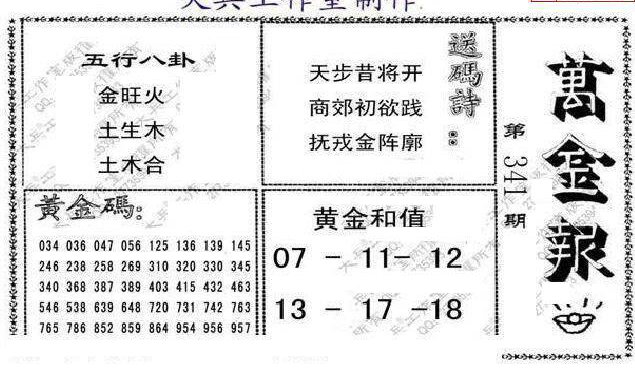 五行八卦
金旺火
土生木
土木合
送碼詩:
天步昔将开
商郊初欲践
抚戎金阵廓
萬金報
第341期
黃金碼:
034 036 047 056 125 136 139 145
246 238 258 269 310 320 330 345
340 368 387 389 403 415 432 463
546 538 639 648 720 731 742 763
765 786 852 859 864 954 956 957
黄金和值
07 - 11- 12
13 - 17 -18